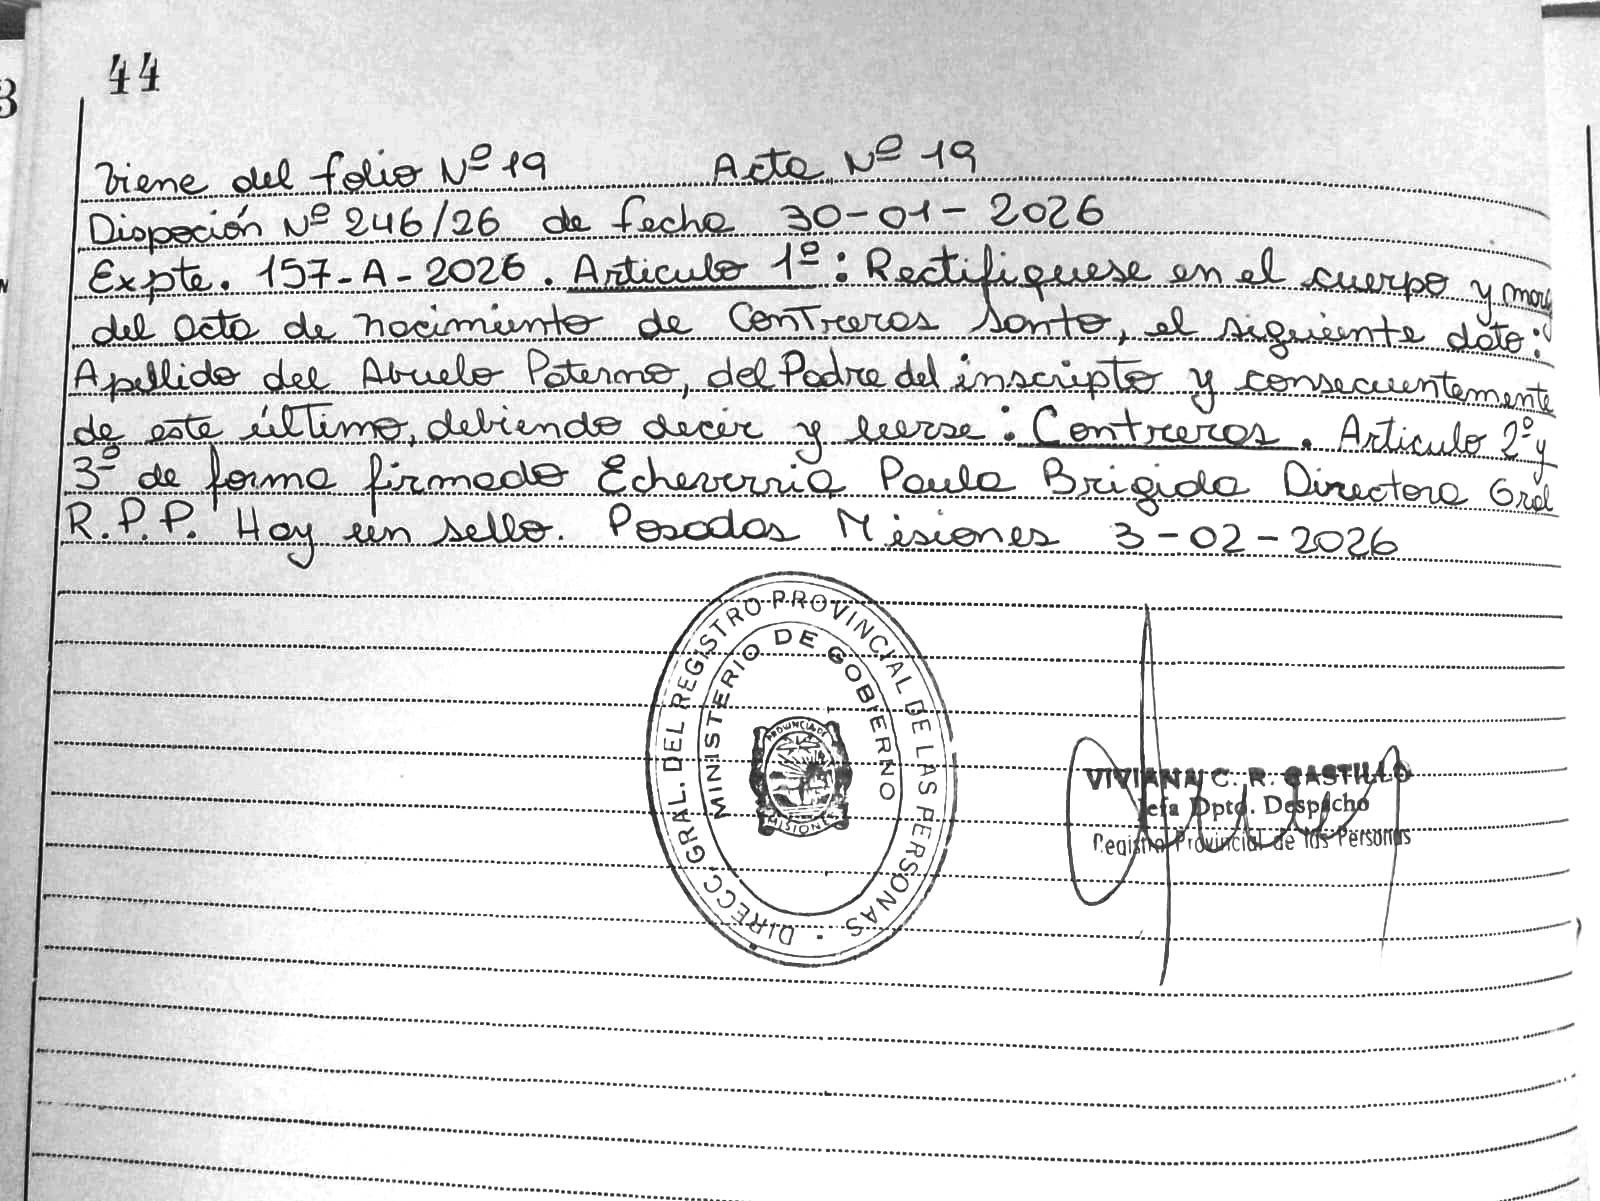 44
Viene del folio Nº 19 Acta Nº 19
Disposición Nº 246/26 de fecha 30-01-2026
Expte. 157-A-2026. Articulo 1º: Rectifiquese en el cuerpo y marg
del acta de nacimiento de Contreras Santo, el siguiente dato:
Apellido del Abuelo Paterno, del Padre del inscripto y consecuentemente
de este último, debiendo decir y leerse: Contreras. Articulo 2º y
3º de forma firmado Echeverria Paula Brigida Directora Gral
R.P.P. Hay un sello. Posadas Misiones 3-02-2026
DIRECC. GRAL. DEL REGISTRO PROVINCIAL DE LAS PERSONAS
MINISTERIO DE GOBIERNO
PROVINCIA DE
MISIONES
VIVIANA C. R. CASTILLO
Jefa Dpto. Despacho
Registro Provincial de las Personas